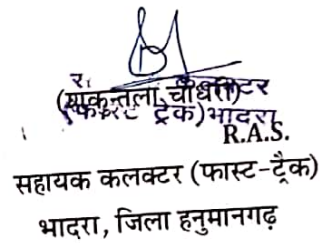 (शकुन्तला चौधरी)
(फास्ट ट्रेक) भादरा
R.A.S.
सहायक कलक्टर (फास्ट-ट्रैक)
भादरा, जिला हनुमानगढ़